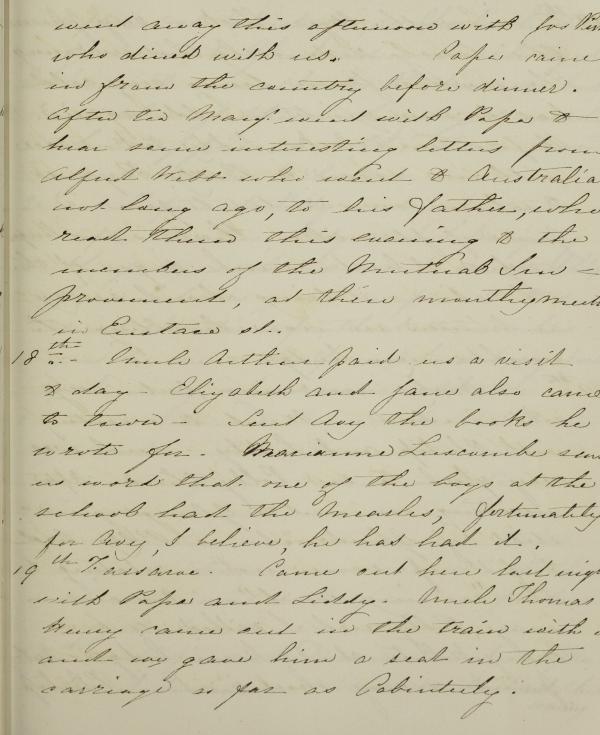 went away this afternoon with Jos Pim
who dined with us. Papa came
in from the country before dinner.
After tea Mary went with Papa to
hear some interesting letters from
Alfred Webb who went to Australia
not long ago, to his father, who
read them this evening to the
members of the Mutual Im-
provement, at their monthly meet
in Eustace st.
18th - Uncle Arthur paid us a visit
to day - Elizabeth and Jane also came
to town - Sent Avy the books he
wrote for. Marianne Luscombe sent
us word that one of the boys at the
school had the measles, fortunately
for Avy, I believe, he has had it.
19th Tassaroe. Came out here last night
with Papa and Liddy. Uncle Thomas
Henry came out in the train with
and we gave him a seat in the
carriage so far as Cabinteely.